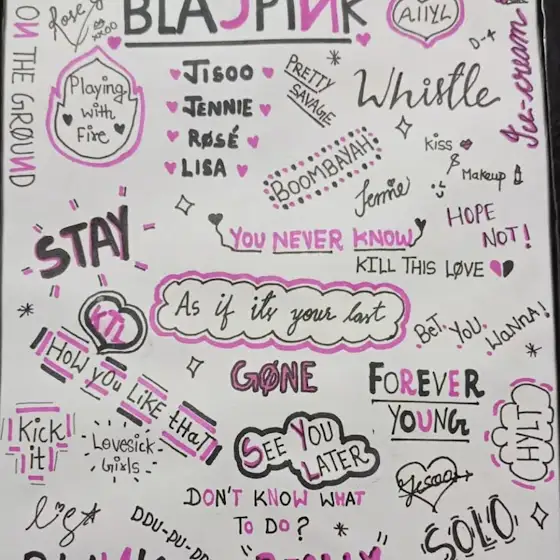 ON THE GRØUND
Rose
xoxo
BLACKPINK
AIIYL
D-4
Ice-cream
Playing
with
Fire
JISOO
JENNIE
ROSÉ
LISA
PRETTY
SAVAGE
Whistle
BOOMBAYAH
Jennie
Kiss
&
Makeup
HOPE
NOT!
STAY
YOU NEVER KNOW
KILL THIS LØVE
As if it's your last
BET YOU WANNA!
KTL
HOW YOU LIKE tHAT
GØNE
FOREVER
YOUNG
HYLT
Kick
it
Lovesick
Girls
SEE YOU
LATER
DON'T KNOW WHAT
TO DO?
DDU-DU-DD
SOLO
REALLY